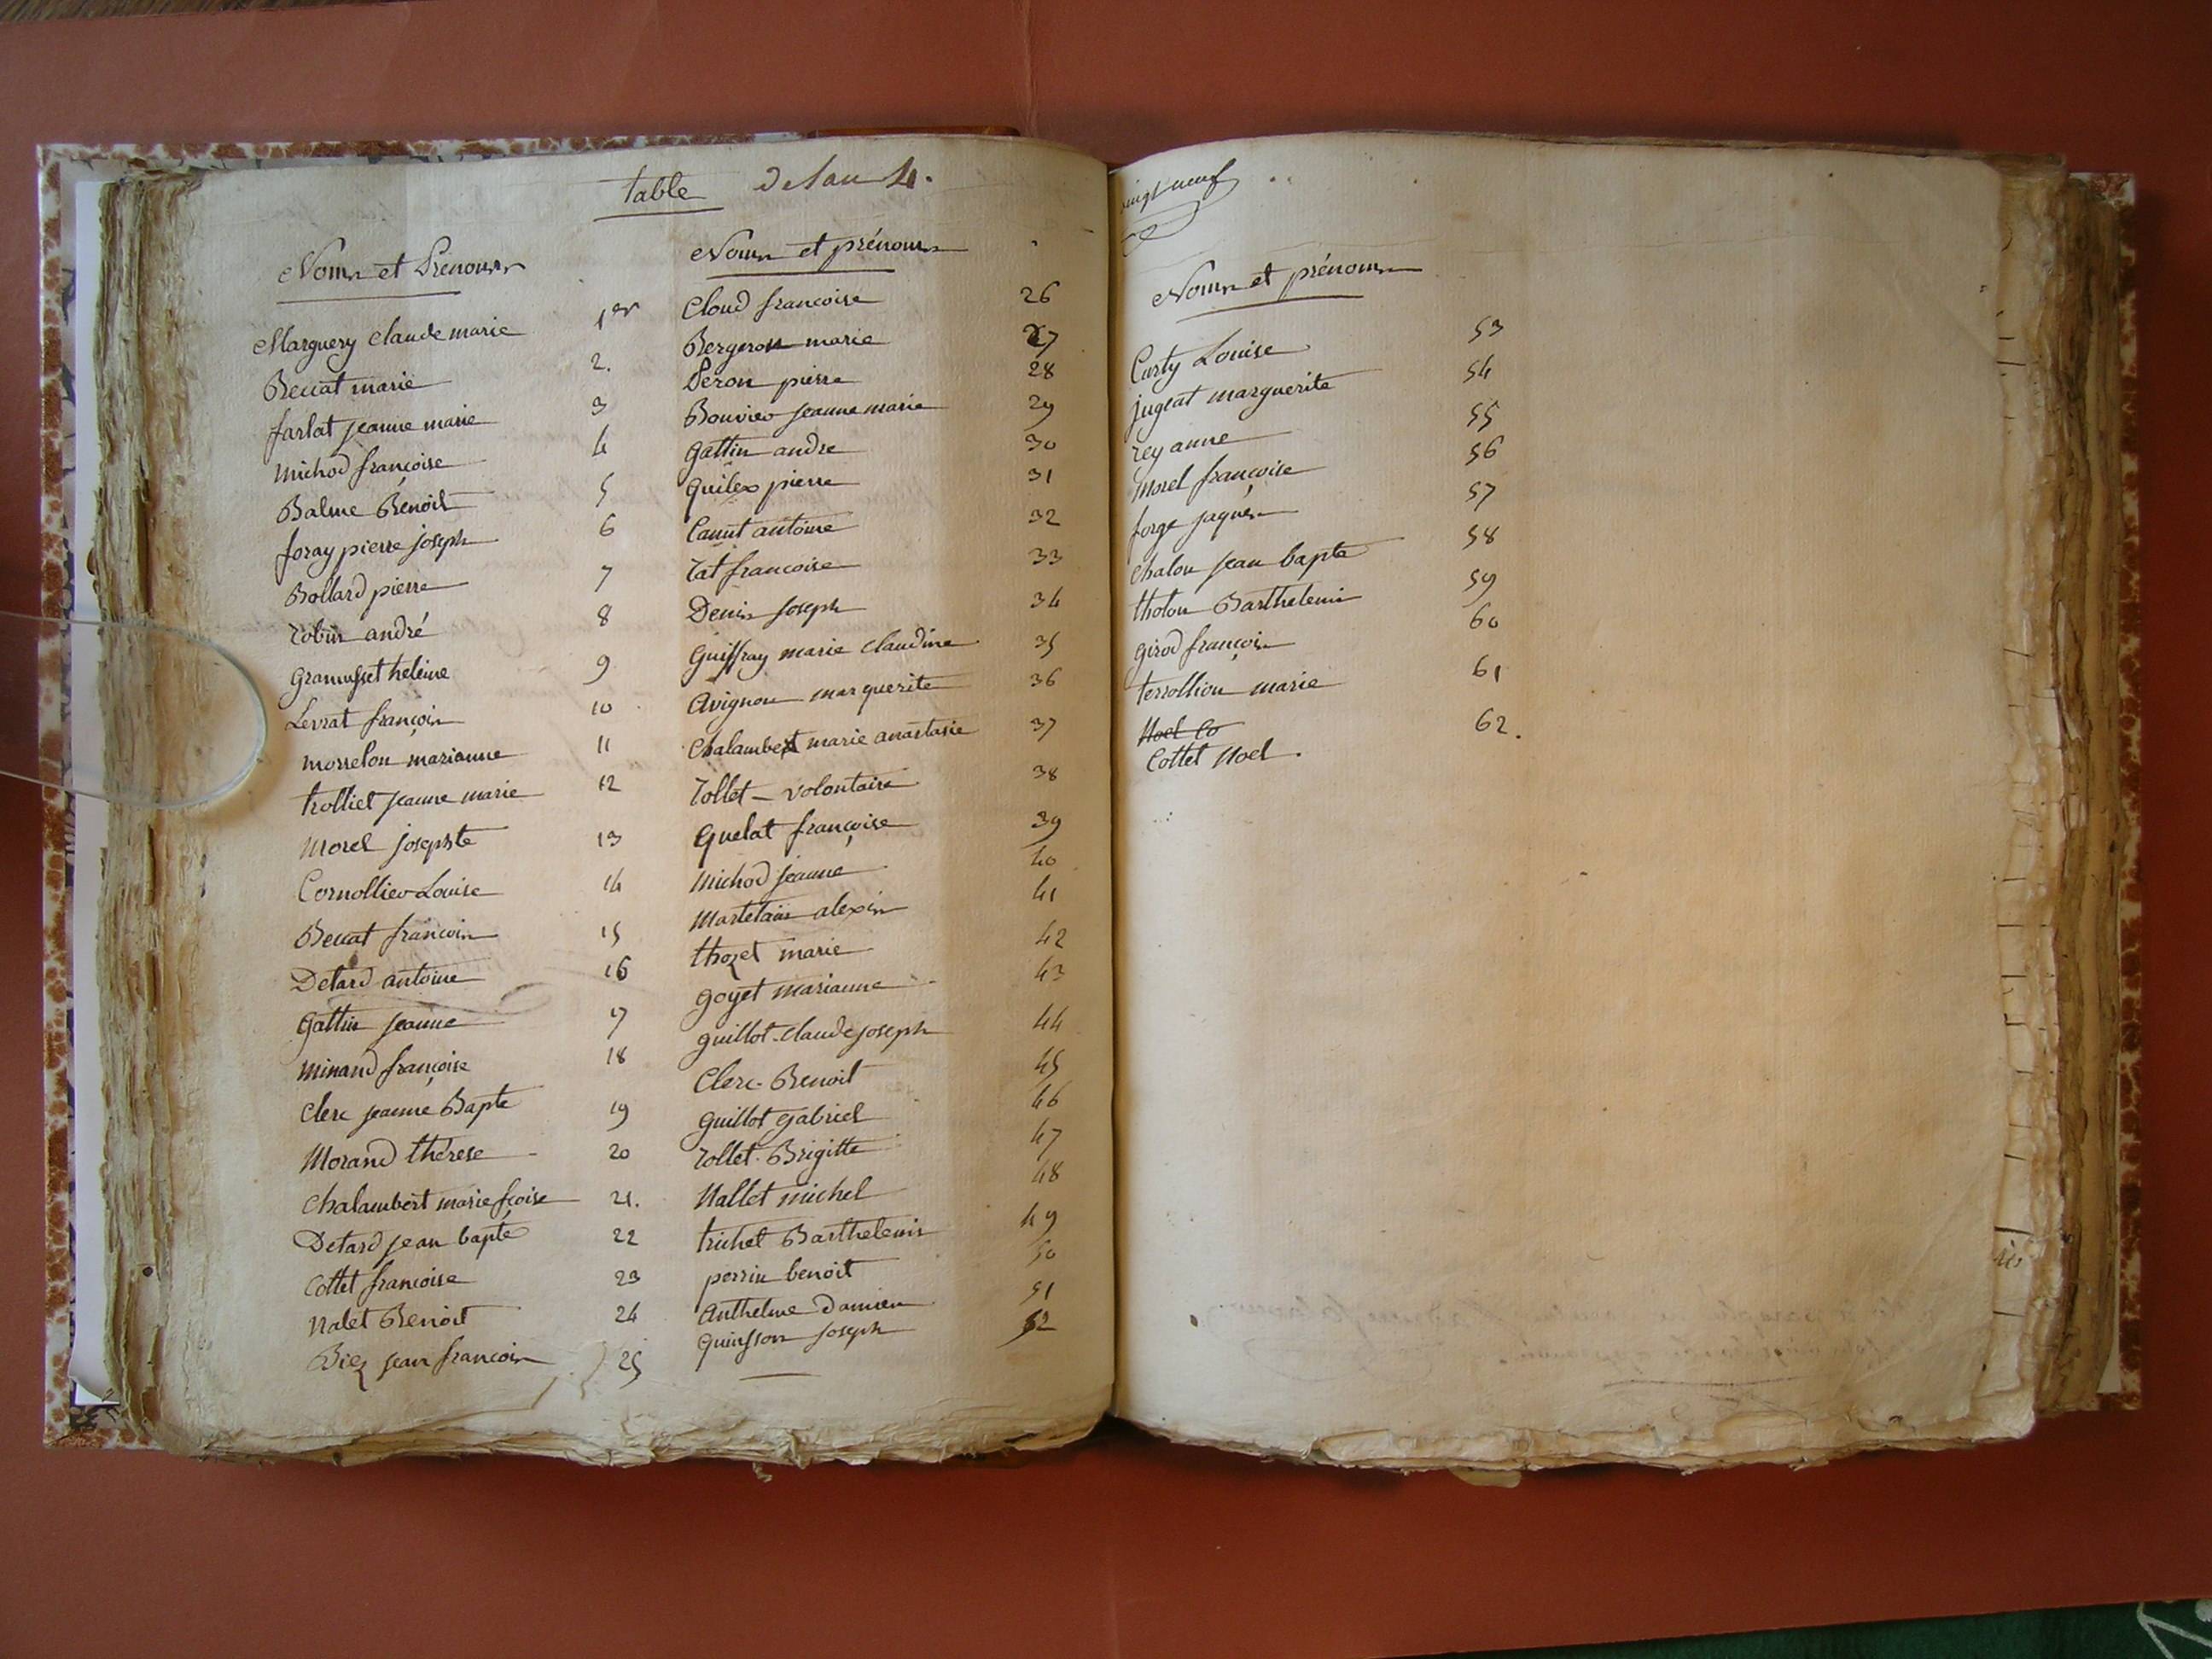 table de l'an 4.
Noms et Prenoms
Marguery Claude marie 1er
Beccat marie 2.
farlat jeanne marie 3
Michod françoise 4
Balme Benoit 5
foray pierre joseph 6
Bollard pierre 7
robin andré 8
Gramusset heleine 9
Levrat françois 10
morrelon marianne 11
trolliet jeanne marie 12
Morel josephte 13
Cornollier Louise 14
Beccat françois 15
Detard antoine 16
gattin jeanne 17
Minand françoise 18
Clerc jeanne Bapte 19
Morand thérese 20
Chalambert marie fçoise 21.
Detard jean bapte 22
Cottet francoise 23
Nalet Benoit 24
Biez jean francois 25
Noms et prénoms
Cloud francoise 26
Bergeron marie 27
Peron pierre 28
Bouvier jeanne marie 29
gattin andre 30
Guilex pierre 31
Canut antoine 32
rat francoise 33
Denis joseph 34
Guiffray marie claudine 35
Avignon marguerite 36
Chalambert marie anastasie 37
rollet - volontaire 38
Quelat françoise 39
Michod jeanne 40
Martelain alexis 41
thozet marie 42
goyet marianne 43
guillot claude joseph 44
Clerc Benoit 45
Guillot gabriel 46
rollet Brigitte 47
Nallet michel 48
trichet Barthelemi 49
perrin benoit 50
Anthelme Damien 51
Quinsson joseph 52
vingt neuf
Noms et prénoms
Curty Louise 53
jugeat marguerite 54
rey anne 55
Morel françoise 56
forge jaques 57
Chalon jean bapte 58
tholon Barthelemi 59
girod françois 60
terrollion marie 61
Noel Co
Cottet Noel. 62.